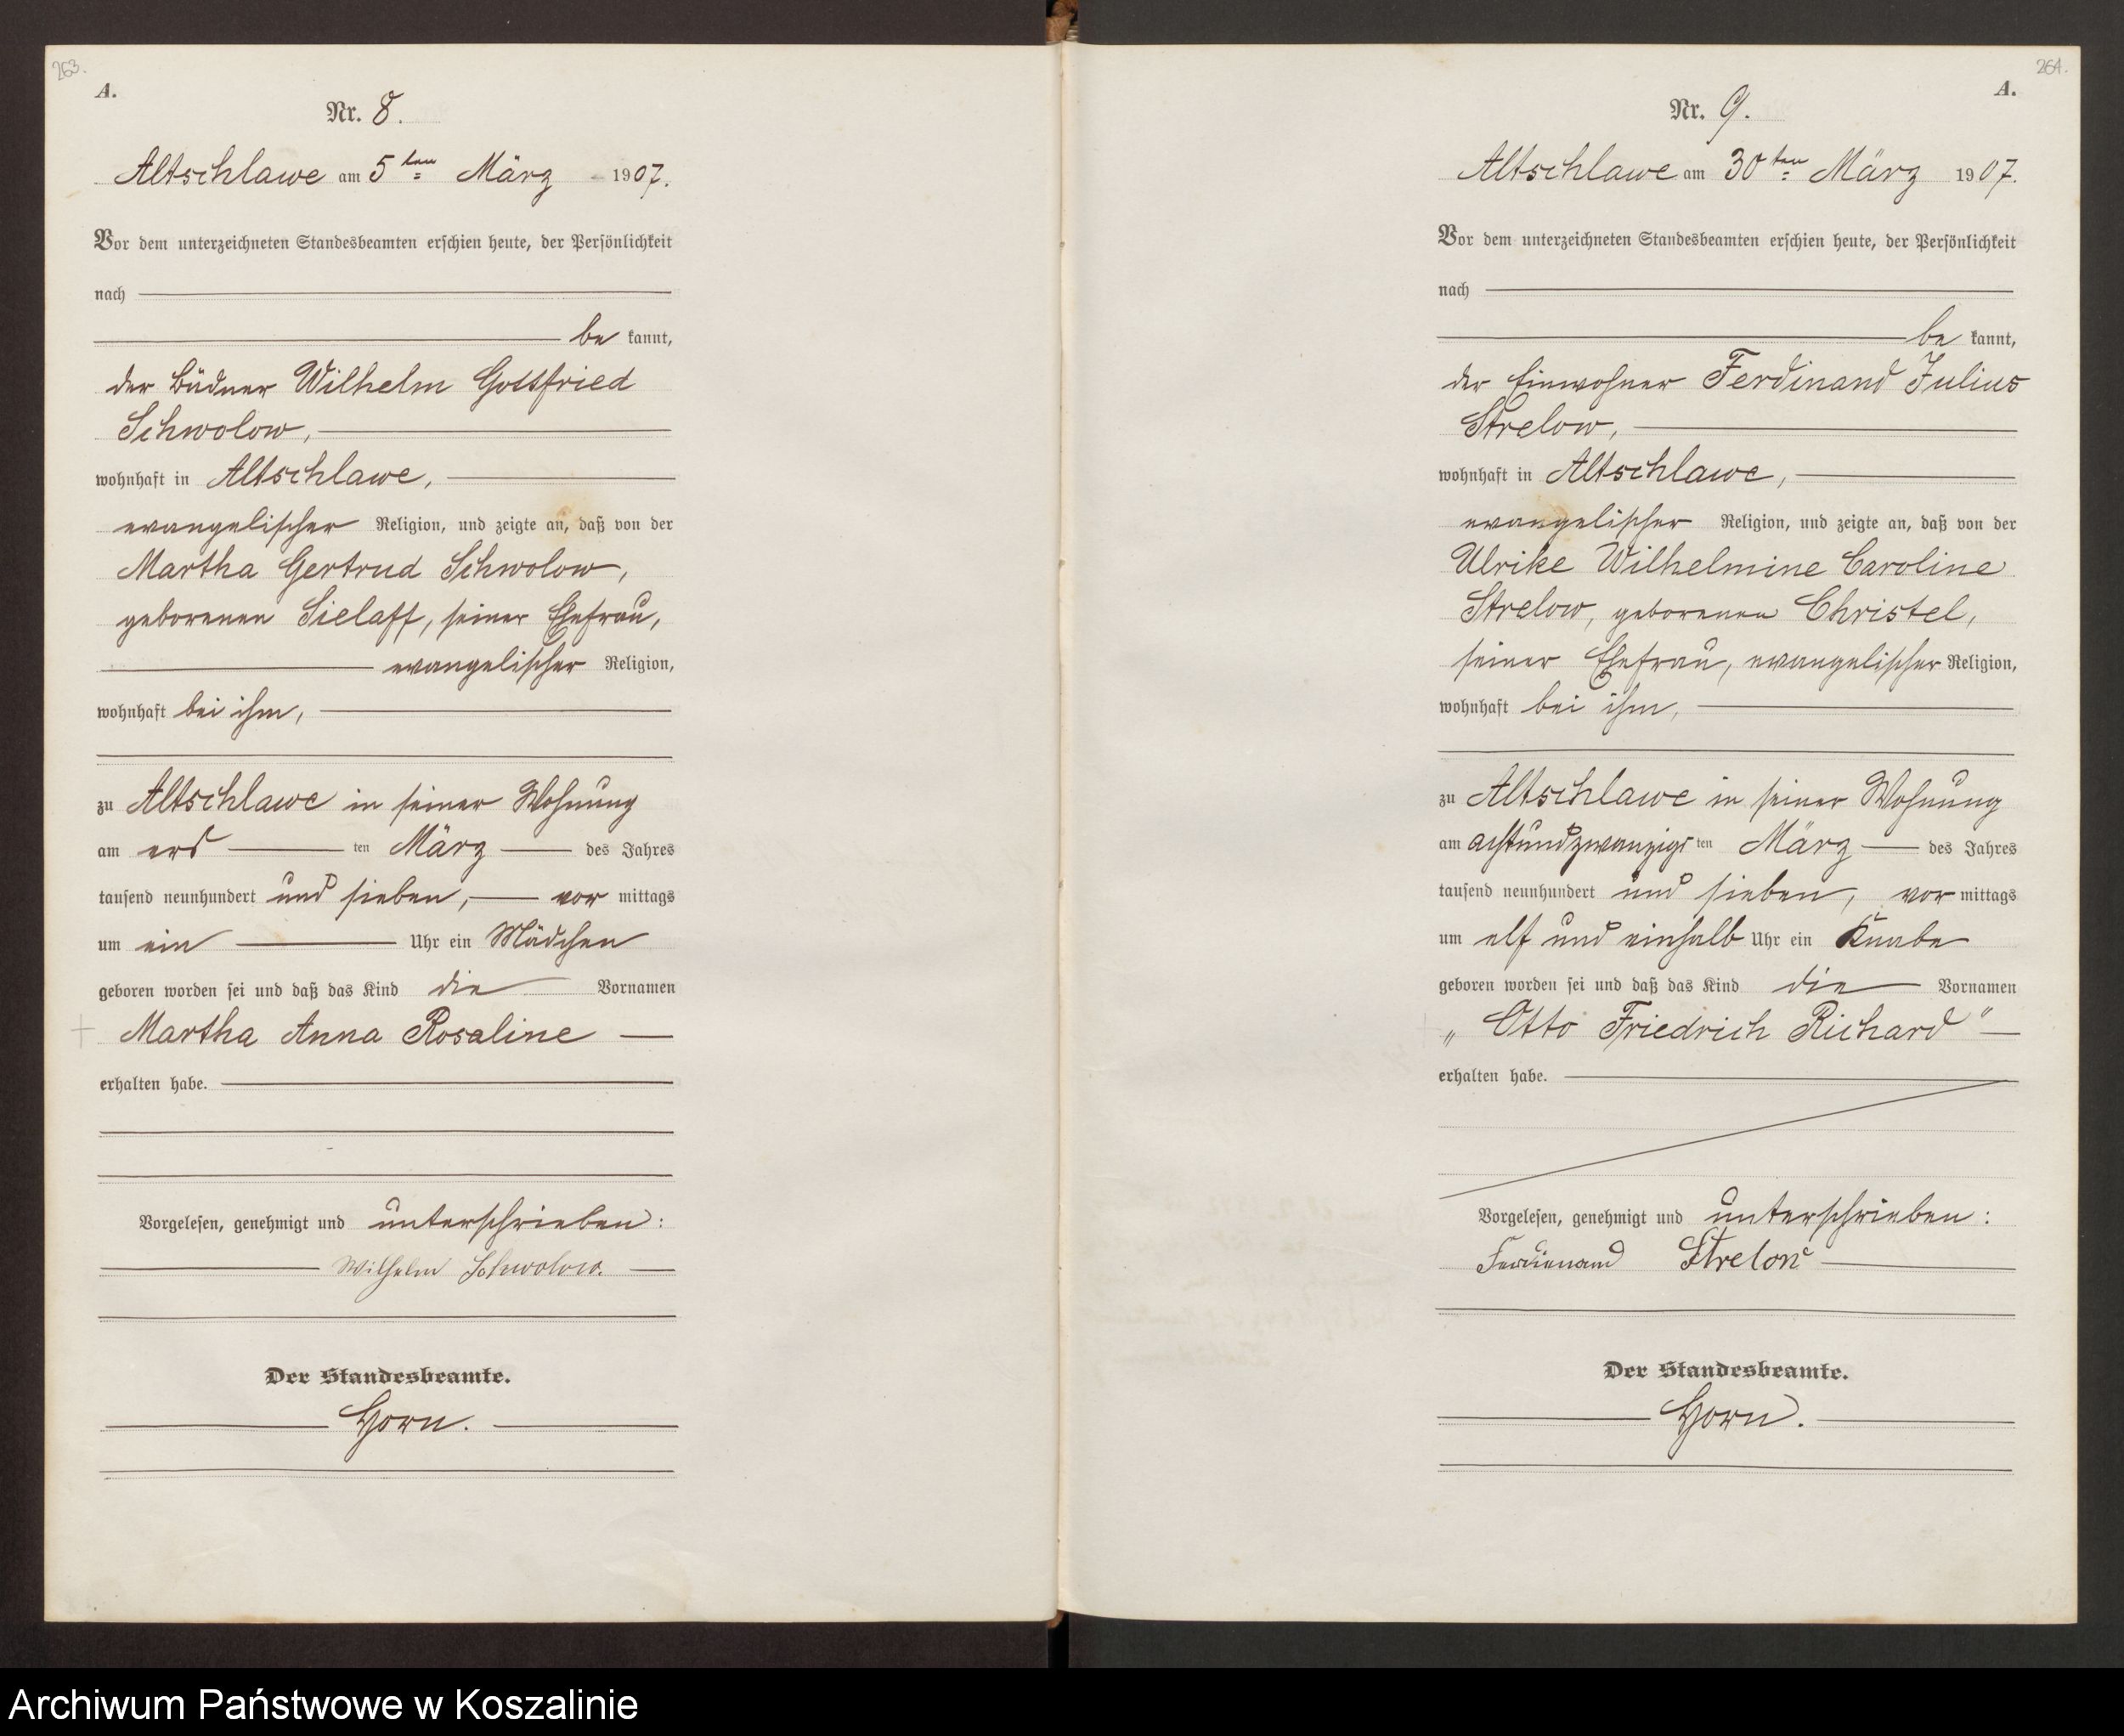 263.
A.
Nr. 8.
Altschlawe am 5ten März 1907.
Vor dem unterzeichneten Standesbeamten erschien heute, der Persönlichkeit
nach
be kannt,
der Büdner Wilhelm Gottfried
Schwolow,
wohnhaft in Altschlawe,
evangelischer Religion, und zeigte an, daß von der
Martha Gertrud Schwolow,
geborenen Sielaff, seiner Ehefrau,
evangelischer Religion,
wohnhaft bei ihm,
zu Altschlawe in seiner Wohnung
am ers ten März des Jahres
tausend neunhundert und sieben, vor mittags
um ein Uhr ein Mädchen
geboren worden sei und daß das Kind die Vornamen
Martha Anna Rosaline
erhalten habe.
Vorgelesen, genehmigt und unterschrieben:
Wilhelm Schwolow.
Der Standesbeamte.
Horn.
264.
A.
Nr. 9.
Altschlawe am 30ten März 1907.
Vor dem unterzeichneten Standesbeamten erschien heute, der Persönlichkeit
nach
be kannt,
der Einwohner Ferdinand Julius
Strelow,
wohnhaft in Altschlawe,
evangelischer Religion, und zeigte an, daß von der
Ulrike Wilhelmine Caroline
Strelow, geborenen Christel,
seiner Ehefrau, evangelischer Religion,
wohnhaft bei ihm,
zu Altschlawe in seiner Wohnung
am achtundzwanzigs ten März des Jahres
tausend neunhundert und sieben, vor mittags
um elf und einhalb Uhr ein Knabe
geboren worden sei und daß das Kind die Vornamen
„Otto Friedrich Richard"
erhalten habe.
Vorgelesen, genehmigt und unterschrieben:
Ferdienand Strelow
Der Standesbeamte.
Horn.
Archiwum Państwowe w Koszalinie